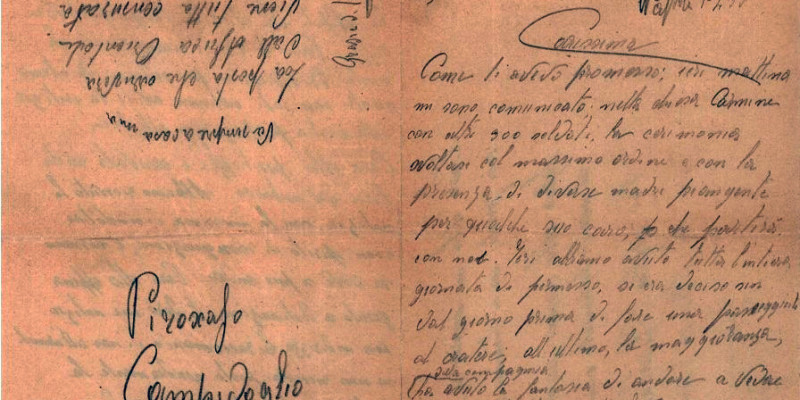 Carissima
Come ti avevo promesso, ieri mattina
mi sono comunicato, nella chiesa Carmine
con altri 300 soldati, la cerimonia
svoltasi col massimo ordine e con la
presenza di diverse madri piangente
per qualche suo caro, che partirà
con noi. Ieri abbiamo avuto tutta l'intiera
giornata di permesso, si era deciso sin
dal giorno prima di fare una passeggiata
al cratere, all'ultimo, la maggioranza,
della compagnia
ha avuto la fantasia di andare a vedere
Va sempre a casa mia
La posta che arriverà
dall'Affrica Orientale
viene tutta censurata